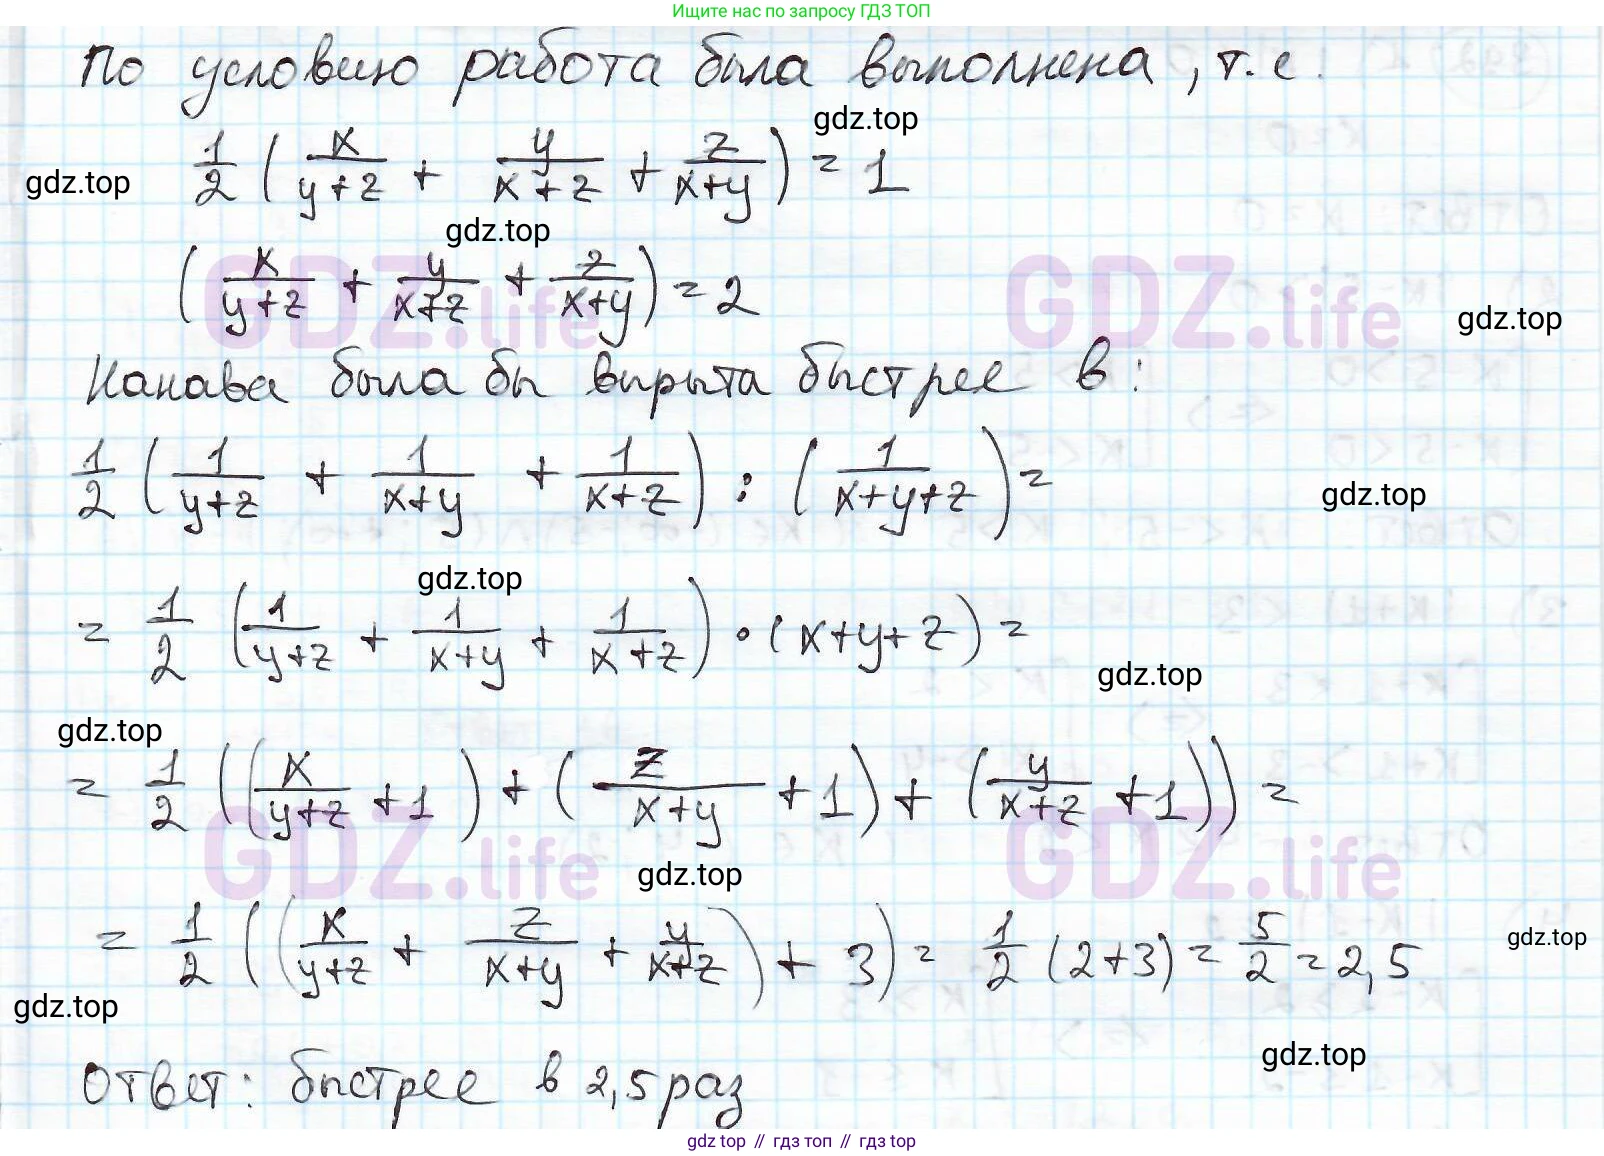 Ищите нас по запросу ГДЗ ТОП
По условию работа была выполнена, т.е.
gdz.top
1/2 (x/(y+z) + y/(x+z) + z/(x+y)) = 1
gdz.top
gdz.top
(x/(y+z) + y/(x+z) + z/(x+y)) = 2
GDZ.life GDZ.life
gdz.top
Канава была бы вырыта быстрее в:
1/2 (1/(y+z) + 1/(x+y) + 1/(x+z)) : (1/(x+y+z)) =
gdz.top
gdz.top
= 1/2 (1/(y+z) + 1/(x+y) + 1/(x+z)) · (x+y+z) =
gdz.top
gdz.top
= 1/2 ((x/(y+z) + 1) + (z/(x+y) + 1) + (y/(x+z) + 1)) =
GDZ.life GDZ.life
gdz.top
= 1/2 ((x/(y+z) + z/(x+y) + y/(x+z)) + 3) = 1/2 (2+3) = 5/2 = 2,5
gdz.top
gdz.top
gdz.top
Ответ: быстрее в 2,5 раз
gdz top // гдз топ // гдз top